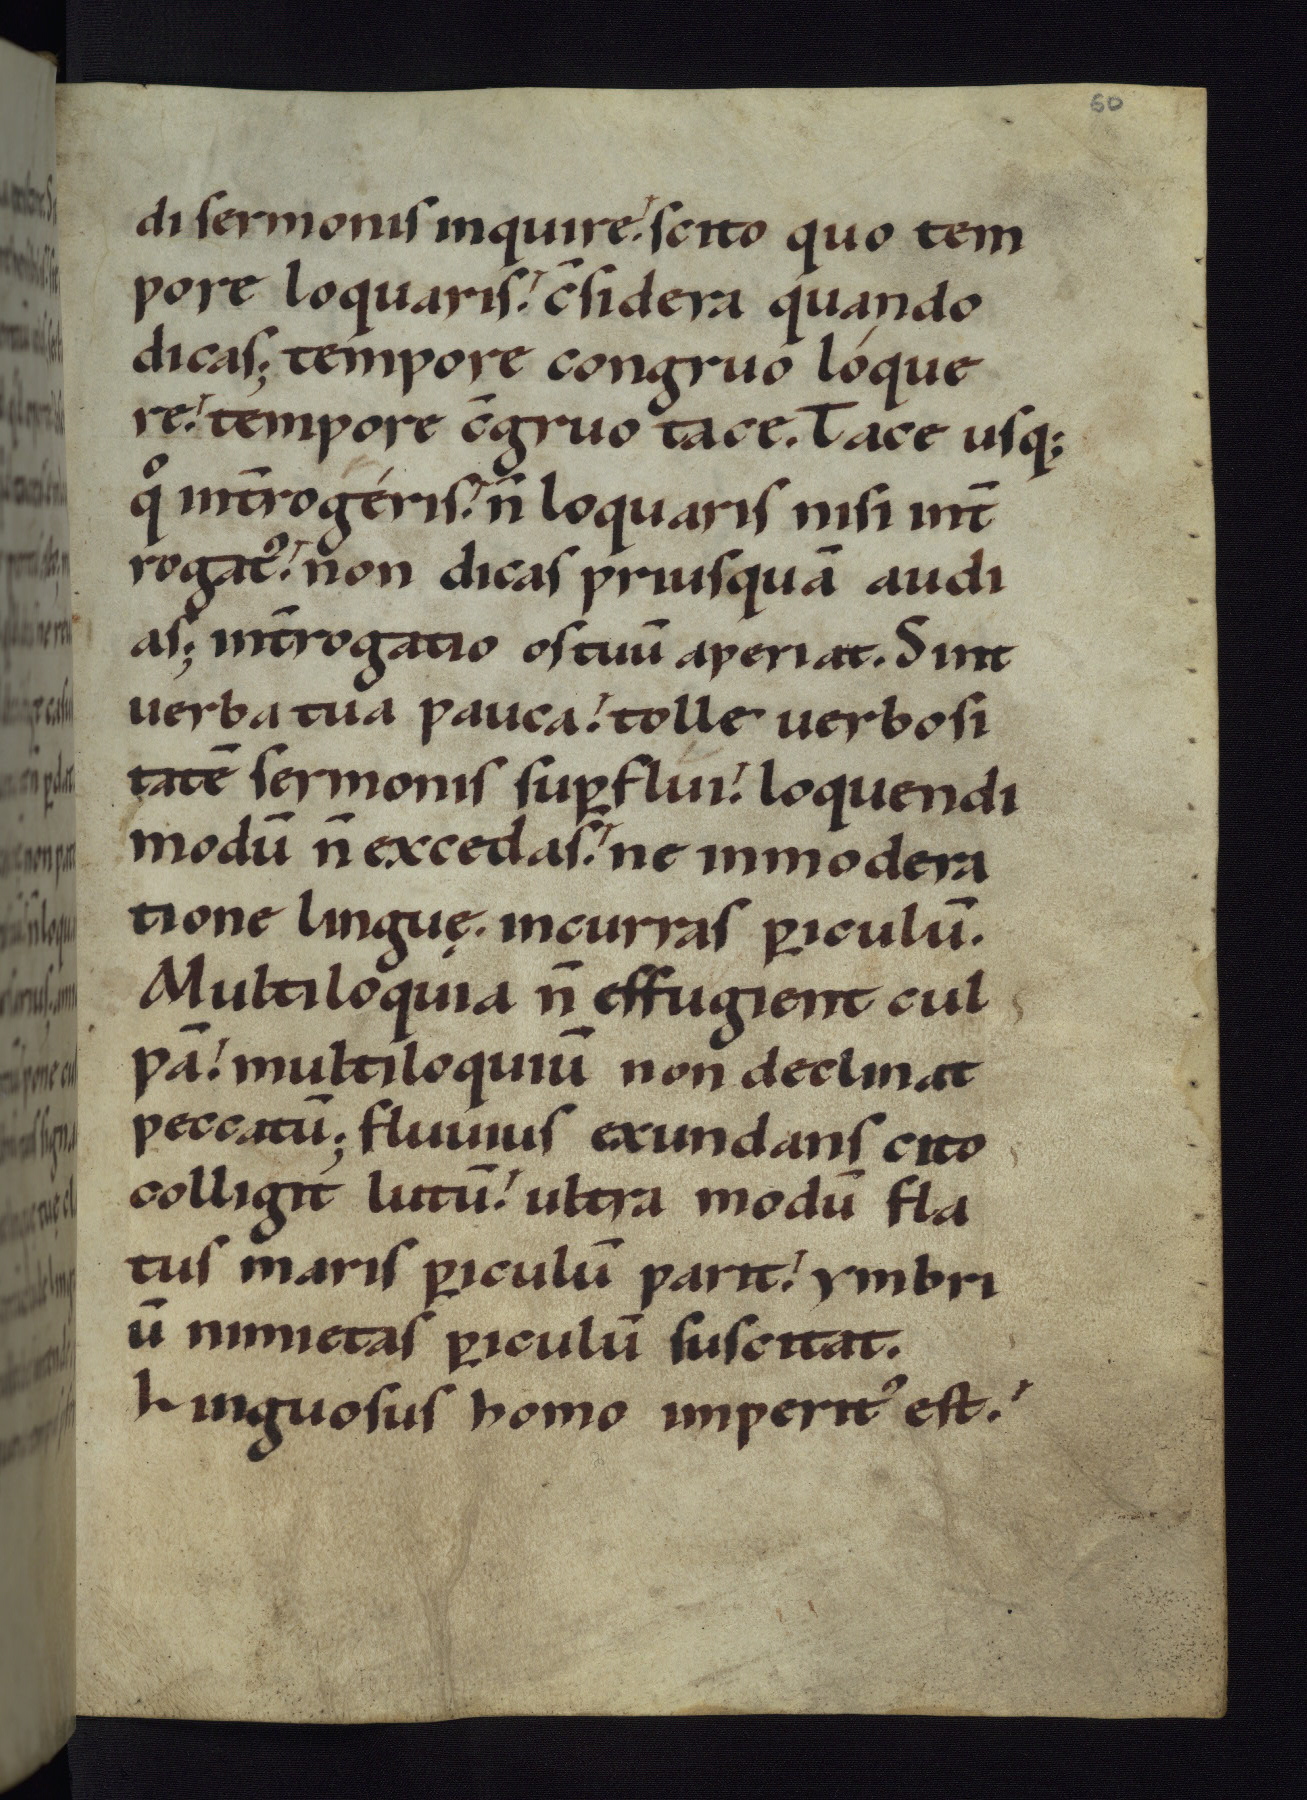 60
di sermonis inquire. scito quo tem
pore loquaris. c̄sidera quando
dicas; tempore congruo lóque
re. tempore c̄gruo tace. Tace usq;
qͦ int̄rogéris. n̄ loquaris nisi int̄
rogatꝰ. non dicas priusquā audi
as; int̄rogatio os tuū aperiat. Sint
uerba tua pauca. tolle uerbosi
tatē sermonis suꝑflui. loquendi
modū n̄ excedas. ne inmodera
tione linguę. incurras ꝑiculū.
Multiloquia n̄ effugient cul
pā. multiloquiū non declinat
peccatū; fluuius exundans cito
colligit lutū. ultra modū fla
tus maris ꝑiculū parit. ymbri
ū nimietas ꝑiculū suscitat.
Linguosus homo imperitꝰ est.